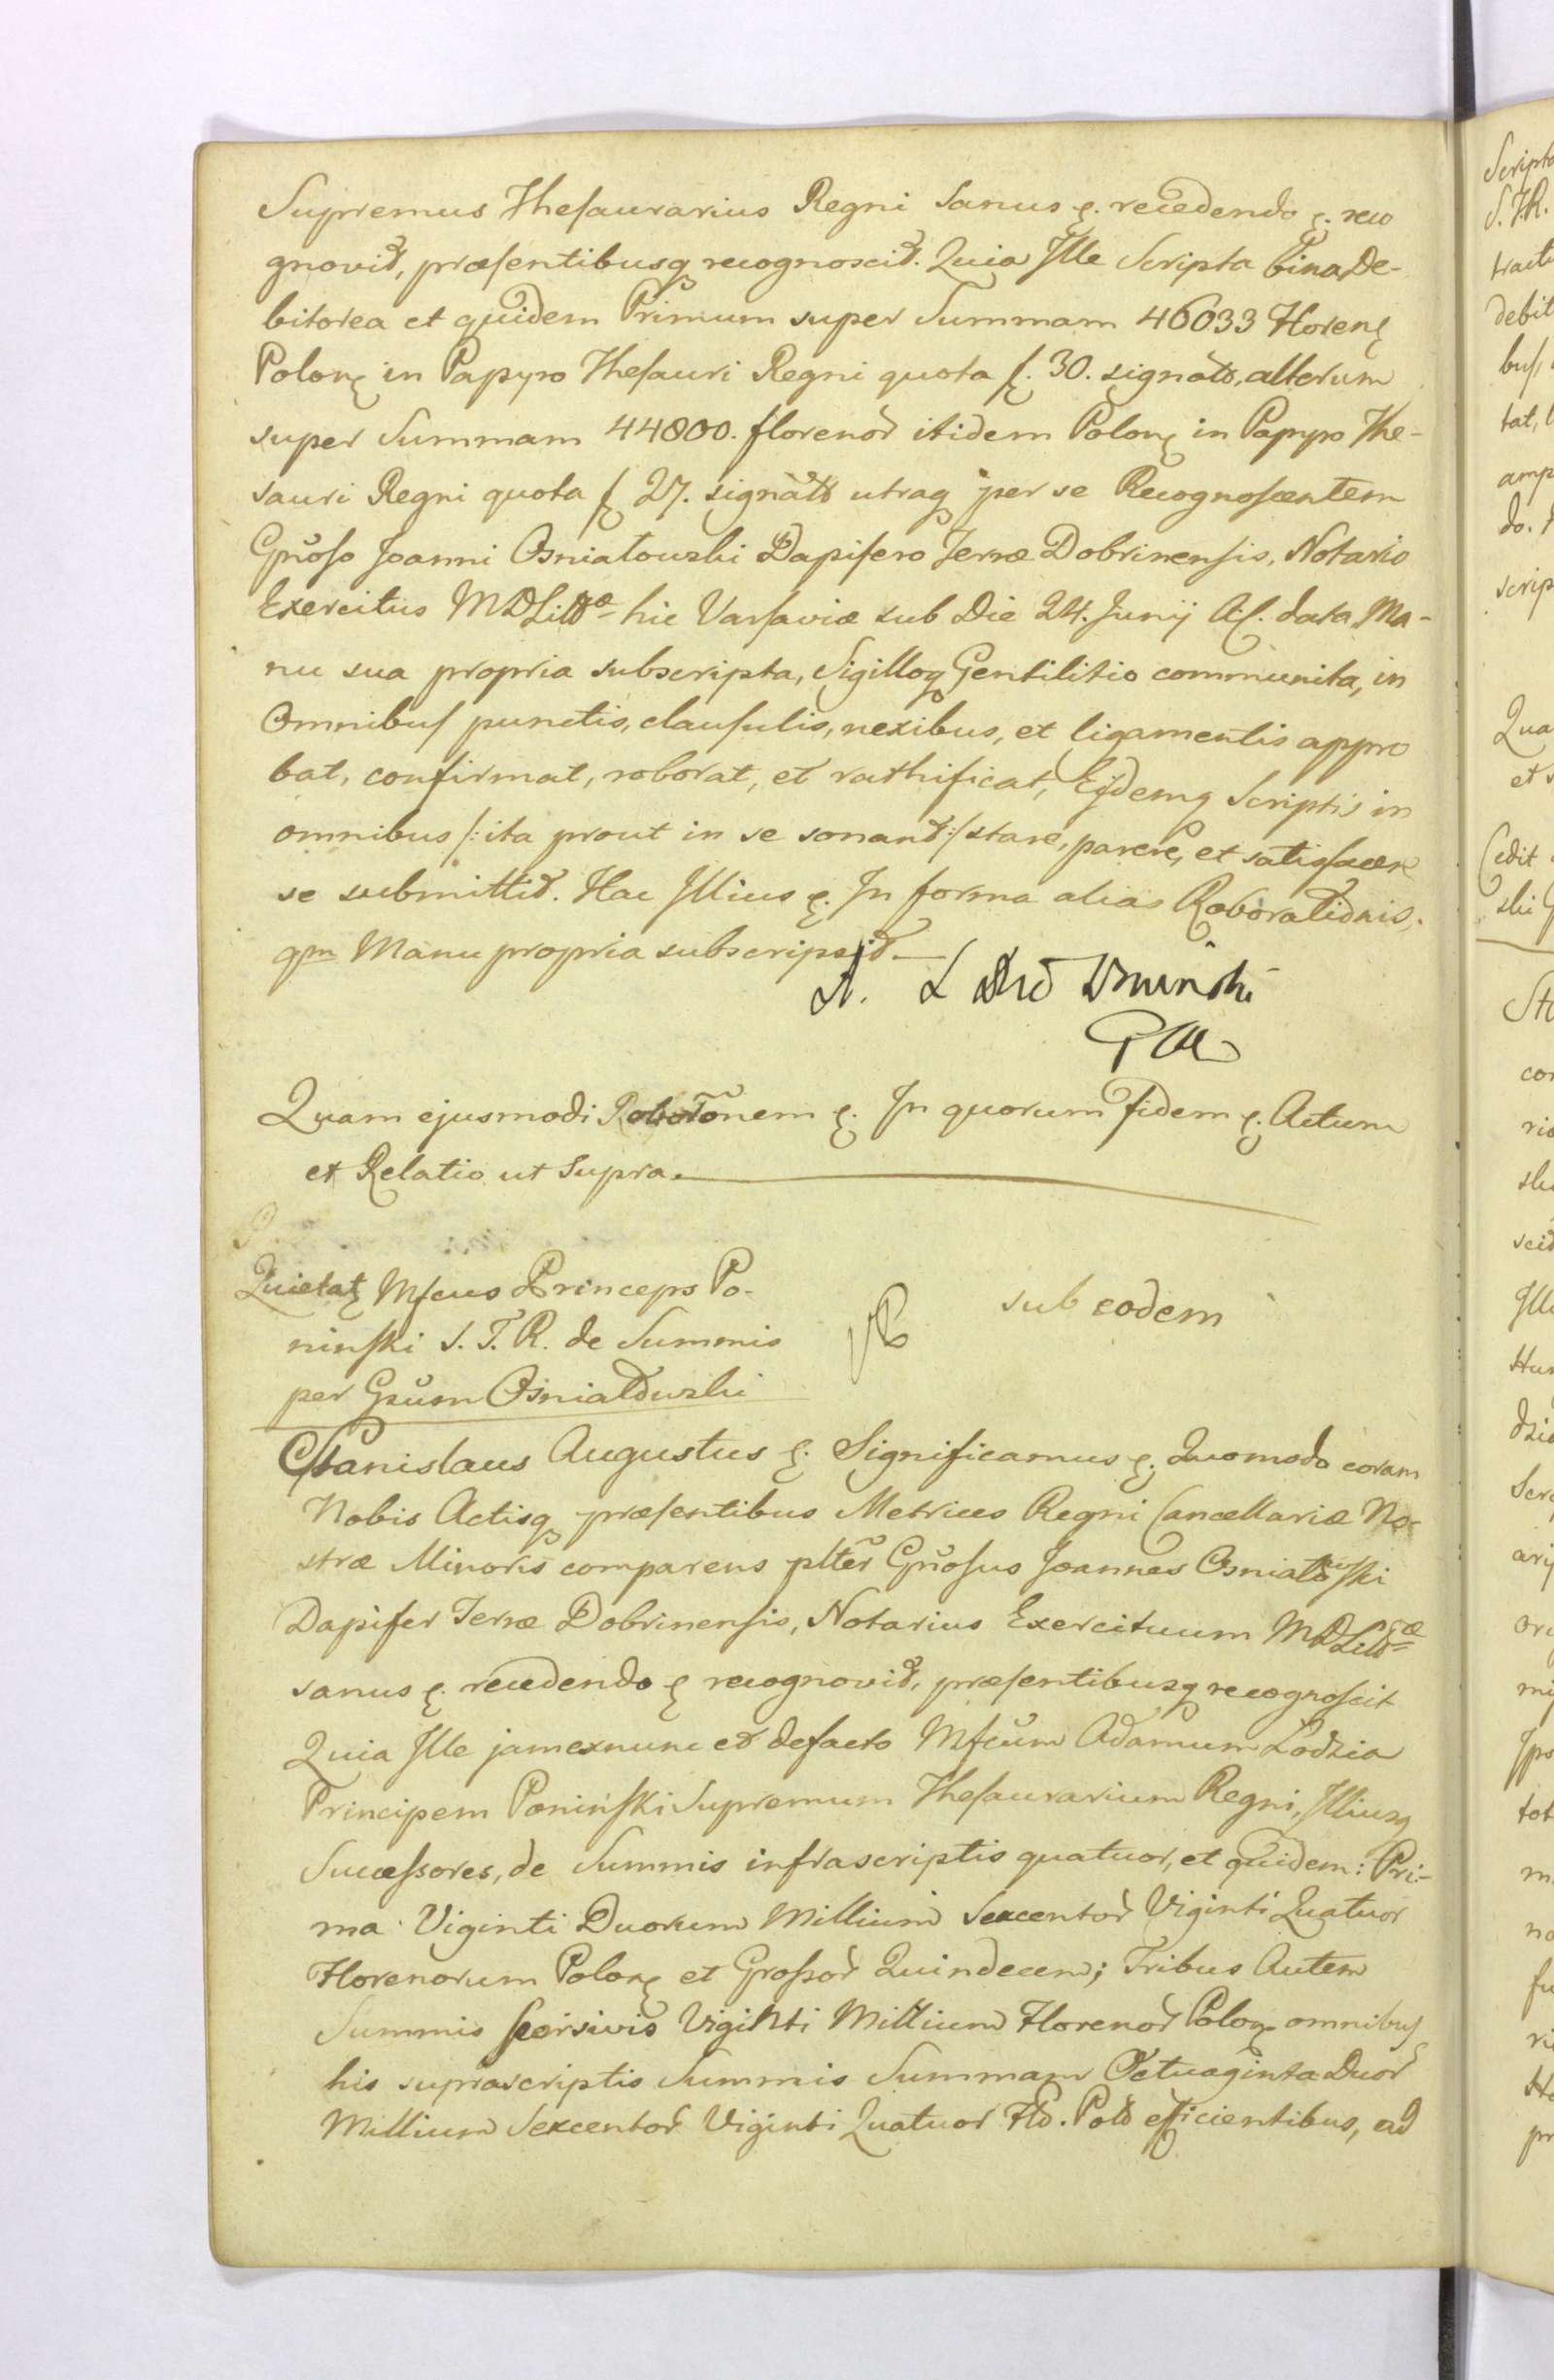 Supremus Thesaurarius Regni Sanus &. recedendo &. reco
gnovit, præsentibusq recognoscit. Quia Ille Scripta bina De-
bitorea et quidem Primum super Summam 46033 Floren
Polon in Papyro Thesauri Regni quota f. 30. signato, alterum
super Summam 44800. florenor itidem Polon in Papyro The-
sauri Regni quota f 27. signato utraq per se Recognoscentem
Gnoso Joanni Osniałowski Dapifero Terræ Dobrinensis, Notario
Exercitus MDLittæ hic Varsaviæ sub Die 24. Junij A. data Ma-
nu sua propria subscripta, Sigilloq Gentilitio communita, in
Omnibus punctis, clausulis, nexibus, et ligamentis appro
bat, confirmat, roborat, et rathificat, Eisdemq Scriptis in
omnibus /: ita prout in se sonant :/ stare, parere, et satisfacere
se submittit. Hac Illius &. In forma alias Roborationis.
qm Manu propria subscripsit —
Quam ejusmodi Robotonem &. In quorum fidem &. Actum
et Relatio ut Supra.
Quietat Mfcus Princeps Po-
ninski S. T. R. de Summis
per Gsum Osniałowski
sub eodem
Stanislaus Augustus &. Significamus &. Quomodo coram
Nobis Actisq præsentibus Metrices Regni Cancellariæ No-
stræ Minoris comparens plter Gnosus Joannes Osniałowski
Dapifer Terræ Dobrinensis, Notarius Exercituum MDLittæ
sanus &. recedendo & recognovit, præsentibusq recognoscit
Quia Ille jam exnunc et defacto Mfcum Adamum Lodzia
Principem Poniński Supremum Thesaurarium Regni, Illiusq
Successores, de Summis infrascriptis quatuor, et quidem: Pri-
ma Viginti Duorum Millium Sexcentor Viginti Quatuor
Florenorum Polon et Grossor Quindecem; Tribus Autem
Summis seorsivis Viginti Millium Florenor Polon omnibus
his suprascriptis Summis Summam Octuaginta Duor
Millium Sexcentor Viginti Quatuor Flo. Polo efficientibus, ad